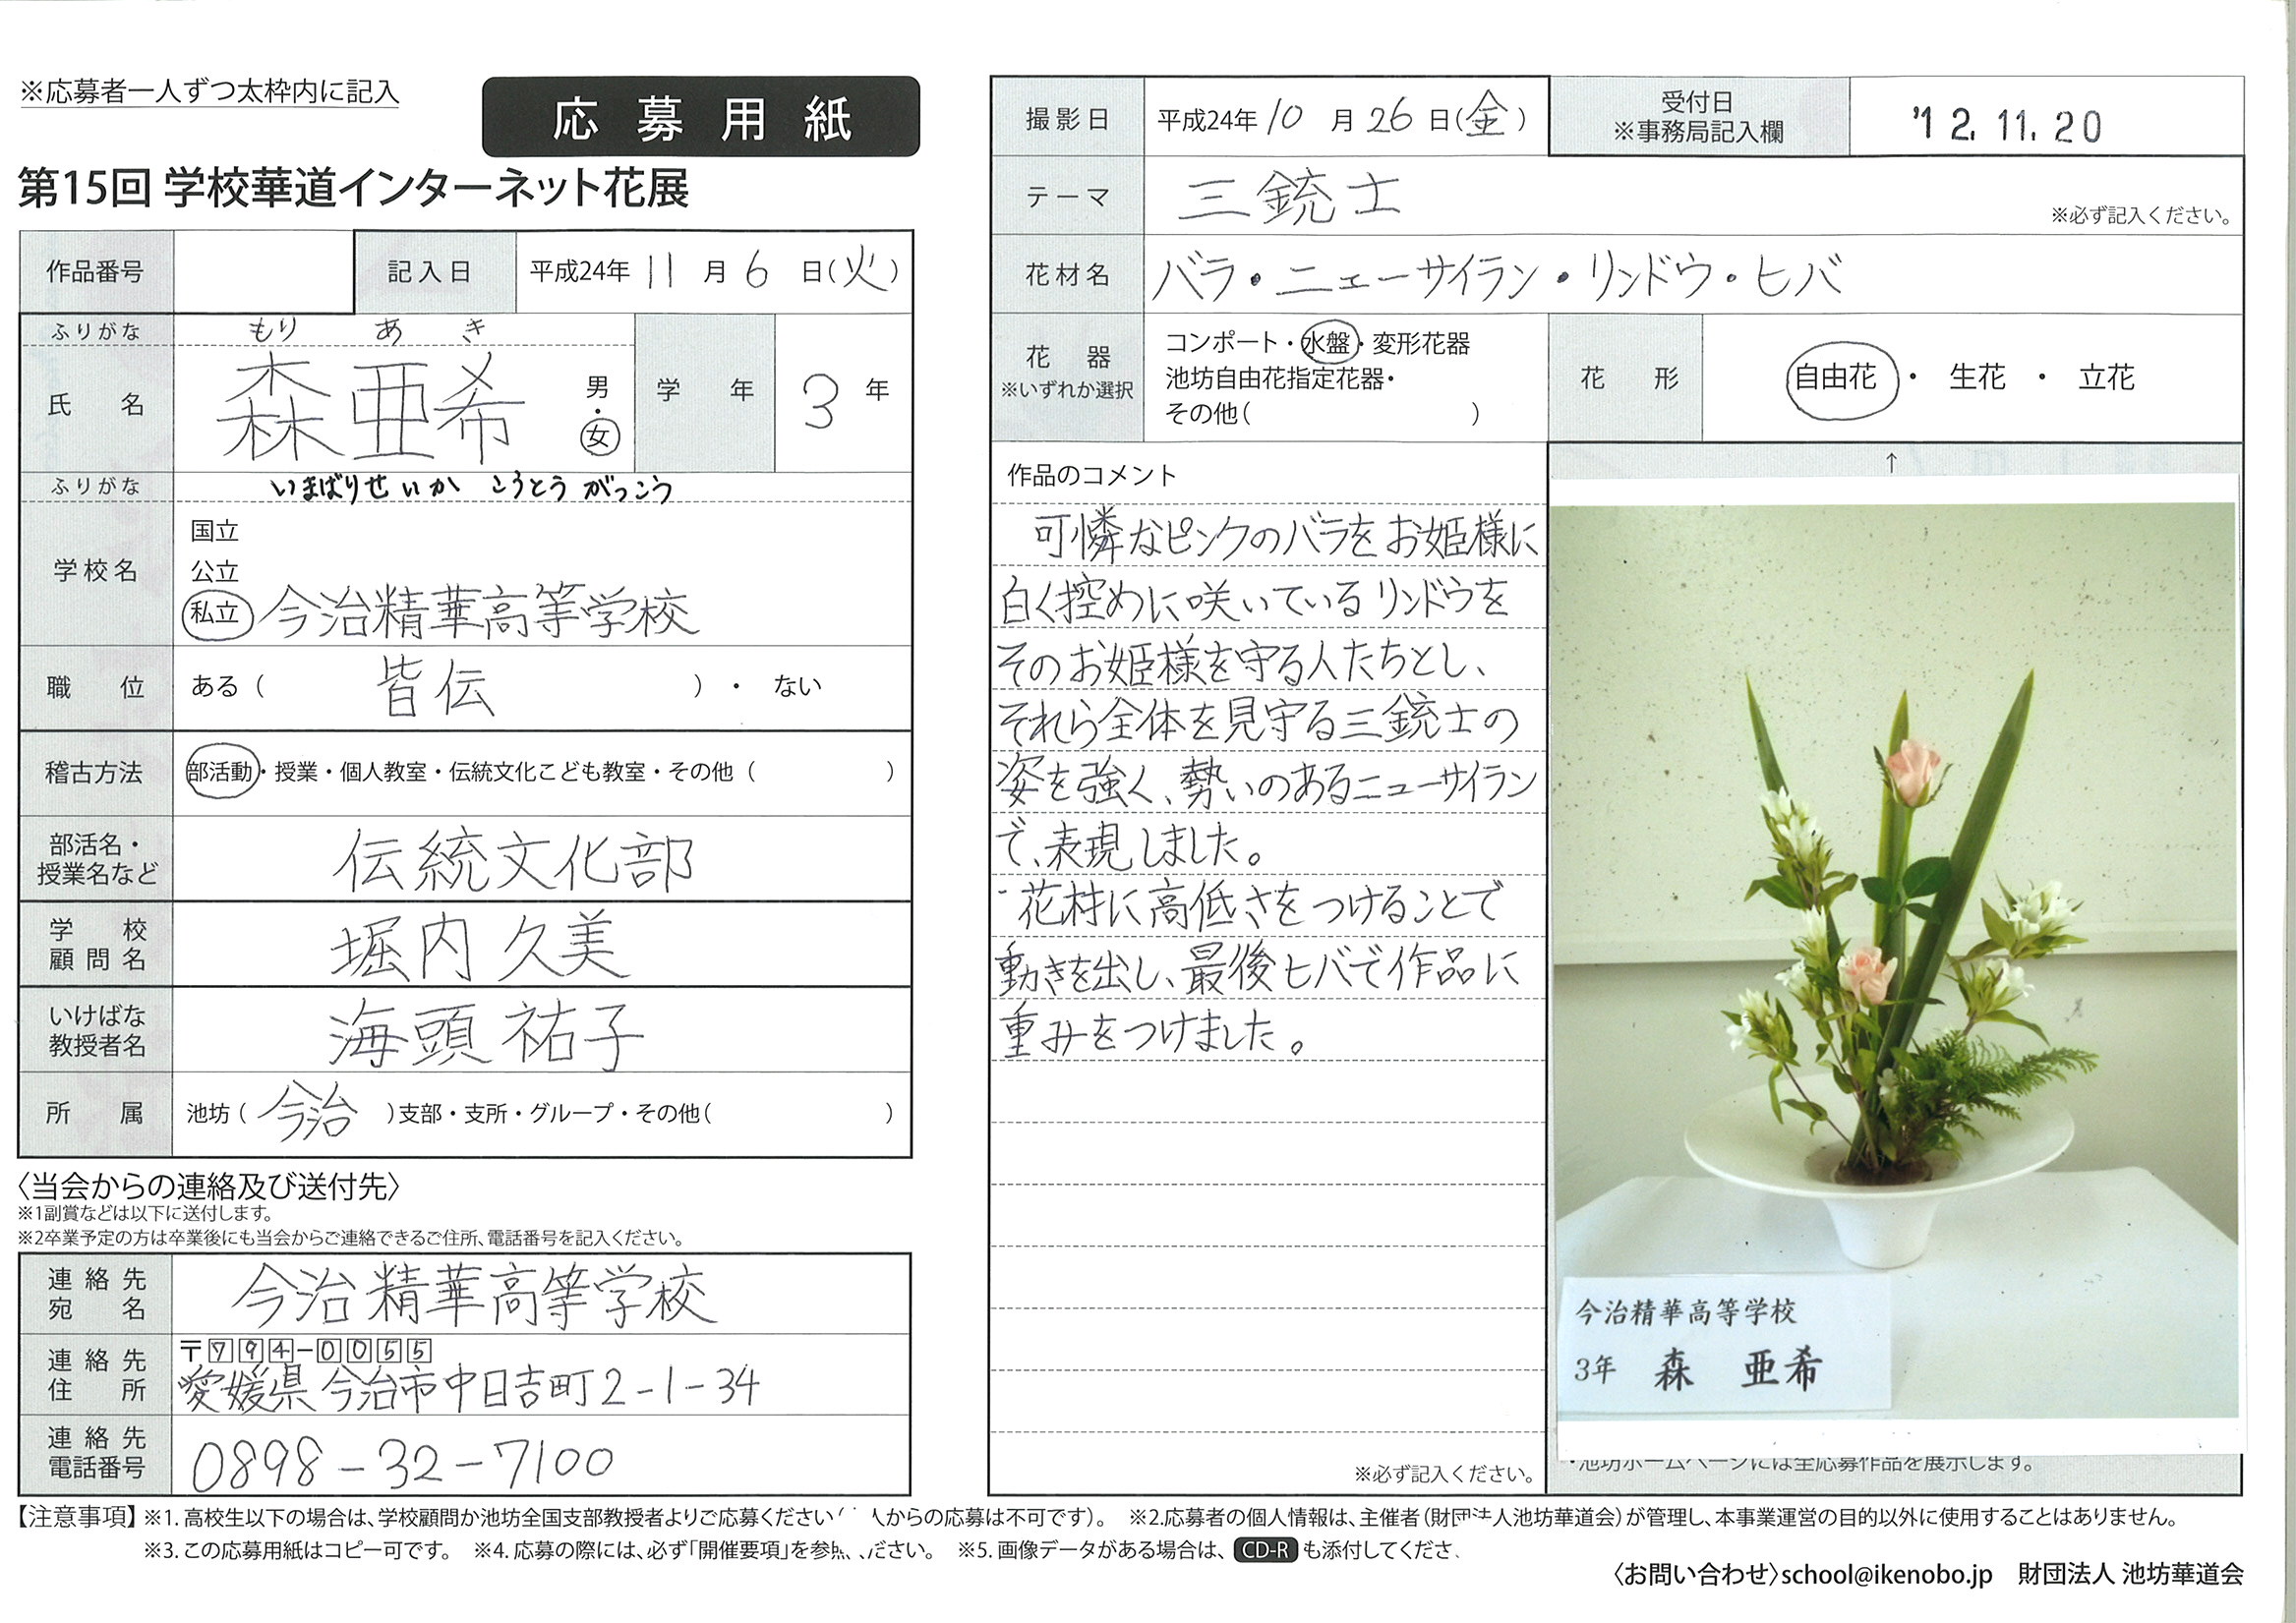 ※応募者一人ずつ太枠内に記入
応募用紙
第15回 学校華道インターネット花展
作品番号
記入日 平成24年 11月 6日(火)
ふりがな もり あき
氏名 森 亜希 男・女
学年 3年
ふりがな いまばりせいか こうとうがっこう
学校名 国立
公立
私立 今治精華高等学校
職位 ある( 皆伝 )・ない
稽古方法 部活動・授業・個人教室・伝統文化こども教室・その他( )
部活名・
授業名など 伝統文化部
学校
顧問名 堀内 久美
いけばな
教授者名 海頭 祐子
所属 池坊( 今治 )支部・支所・グループ・その他( )
〈当会からの連絡及び送付先〉
※1副賞などは以下に送付します。
※2卒業予定の方は卒業後にも当会からご連絡できるご住所、電話番号を記入ください。
連絡先
宛名 今治精華高等学校
連絡先
住所 〒794-0055
愛媛県今治市中日吉町2-1-34
連絡先
電話番号 0898-32-7100
撮影日 平成24年10月26日(金)
受付日
※事務局記入欄 '12.11.20
テーマ 三銃士
※必ず記入ください。
花材名 バラ・ニューサイラン・リンドウ・ヒバ
花器
※いずれか選択
コンポート・水盤・変形花器
池坊自由花指定花器・
その他( )
花形 自由花・生花・立花
作品のコメント
可憐なピンクのバラをお姫様に
白く控めに咲いているリンドウを
そのお姫様を守る人たちとし、
それら全体を見守る三銃士の
姿を強く、勢いのあるニューサイラン
で、表現しました。
花材に高低さをつけることで
動きを出し、最後ヒバで作品に
重みをつけました。
※必ず記入ください。
↑
今治精華高等学校
3年 森 亜希
・池坊ホームページには全応募作品を展示します。
【注意事項】※1. 高校生以下の場合は、学校顧問か池坊全国支部教授者よりご応募ください( 人からの応募は不可です)。 ※2.応募者の個人情報は、主催者(財団法人池坊華道会)が管理し、本事業運営の目的以外に使用することはありません。
※3. この応募用紙はコピー可です。 ※4. 応募の際には、必ず「開催要項」を参照ください。 ※5. 画像データがある場合は、CD-Rも添付してくださ
〈お問い合わせ〉school@ikenobo.jp 財団法人 池坊華道会